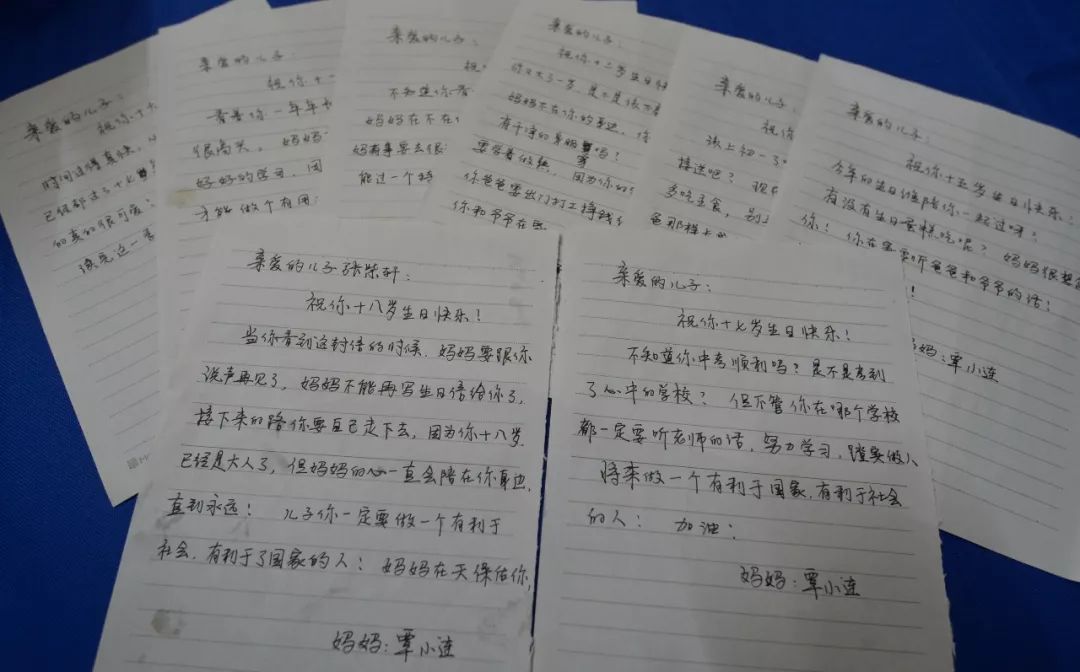 亲爱的儿子：
时间过得真快，
已经都过了十七
的真的很可爱！
读完这一
亲爱的儿子：
祝你十一
看着你一年年长
很高兴，妈妈
好好的学习，因
才能做个有用
亲爱的儿子：
祝
不知道你看
妈妈在不在
妈有事要去很
能过一个
亲爱的儿子：
祝你十二岁生日快
你又大了一岁，是不是很
妈妈不在你的身边，你
有干净的身服穿吗？
要学着做熟，因为你的
你爸爸要出门打工挣钱
你和爷爷在
亲爱的儿子：
祝你
该上初一了
接送吧？
多吃主食，别
爸那样
亲爱的儿子：
祝你十五岁生日快乐！
今年的生日谁陪你一起过呀？
有没有生日蛋糕吃呢？妈妈很想
你！你在家要听爸爸和爷爷的话！
妈：覃小连
亲爱的儿子张荣轩：
祝你十八岁生日快乐！
当你看到这封信的时候，妈妈要跟你
说声再见了，妈妈不能再写生日信给你了，
接下来的路你要自己走下去，因为你十八岁
已经是大人了，但妈妈的心一直会陪在你身边，
直到永远！儿子你一定要做一个有利于
社会，有利于了国家的人：妈妈在天保佑你，
妈妈：覃小连
亲爱的儿子：
祝你十七岁生日快乐！
不知道你中考顺利吗？是不是考到
了心中的学校？但不管你在哪个学校
都一定要听老师的话，努力学习，
将来做一个有利于国家，有利于社会
的人：加油：
妈妈：覃小连